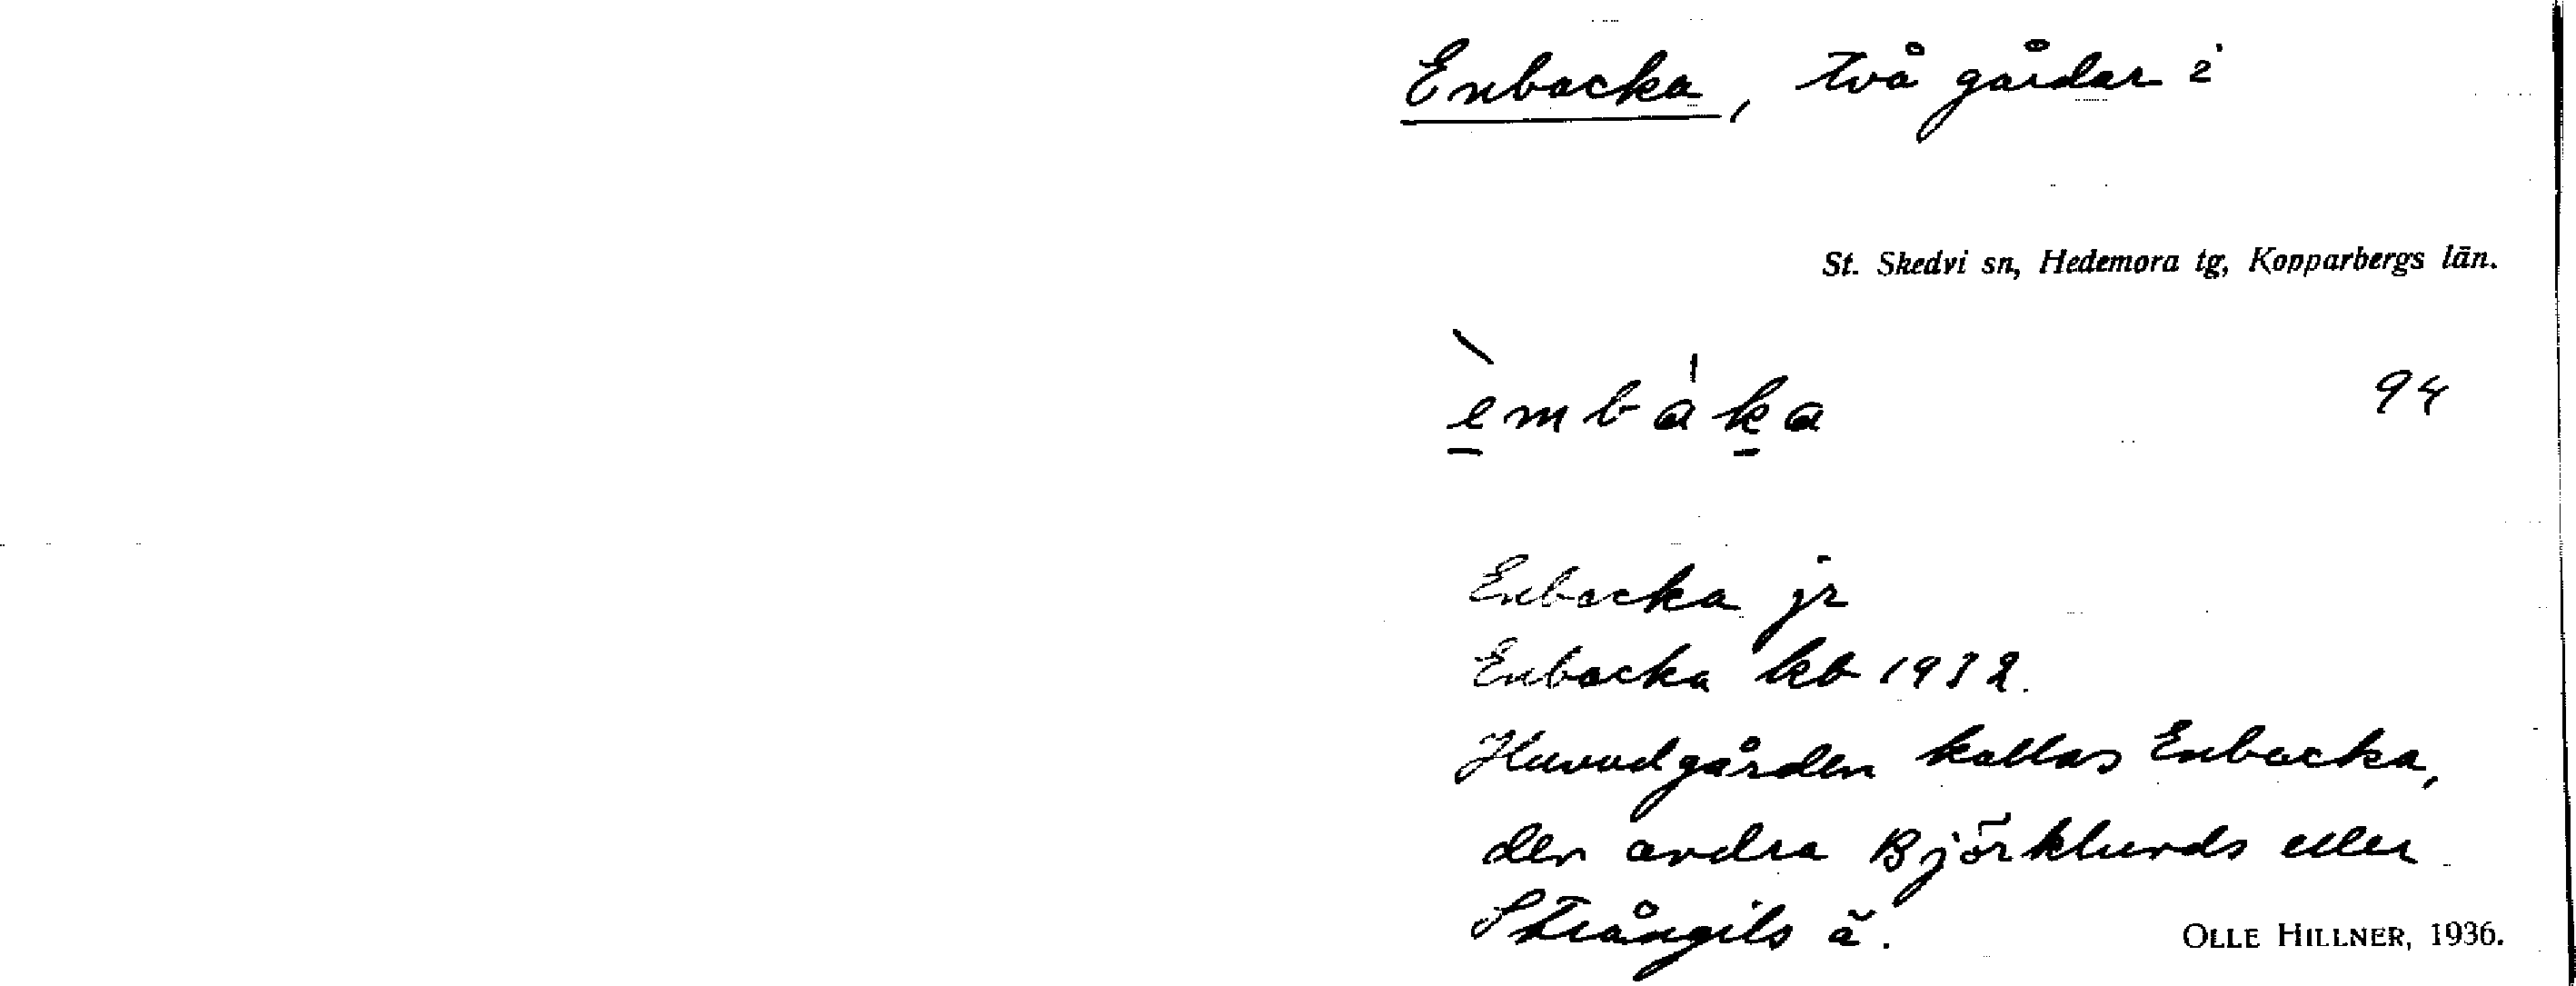 Enbacka, två gårdar i
St. Skedvi sn, Hedemora tg, Kopparbergs län.
èmba̍ka
94
Enbacka jr
Enbacka kb 1932.
Huvudgården kallas Enbacka,
den andra Björklunds eller
Strångils ä.
OLLE HILLNER, 1936.